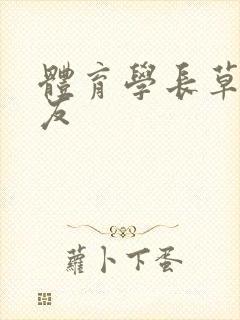 體育學長草
友
蘿卜下蛋